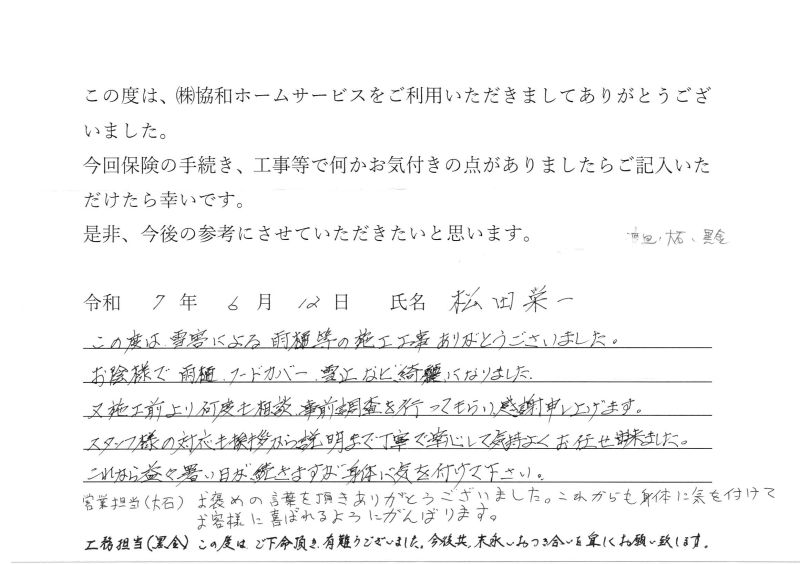 この度は、㈱協和ホームサービスをご利用いただきましてありがとうござ
いました。
今回保険の手続き、工事等で何かお気付きの点がありましたらご記入いた
だけたら幸いです。
是非、今後の参考にさせていただきたいと思います。
大石、黒金
令和 7 年 6 月 12 日 氏名 松田栄一
この度は雪害による雨樋等の施工工事ありがとうございました。
お陰様で雨樋、フードカバー、雪止など綺麗になりました。
又施工前より何度も相談、事前調査を行ってもらい感謝申し上げます。
スタッフ様の対応も挨拶から説明まで丁寧で安心して気持よくお任せ出来ました。
これから益々暑い日が続きますが身体に気を付けて下さい。
営業担当(大石) お褒めの言葉を頂きありがとうございました。これからも身体に気を付けて
お客様に喜ばれるようにがんばります。
工務担当(黒金) この度はご下命頂き、有難うございました。今後共、末永いおつき合いを宜しくお願い致します。